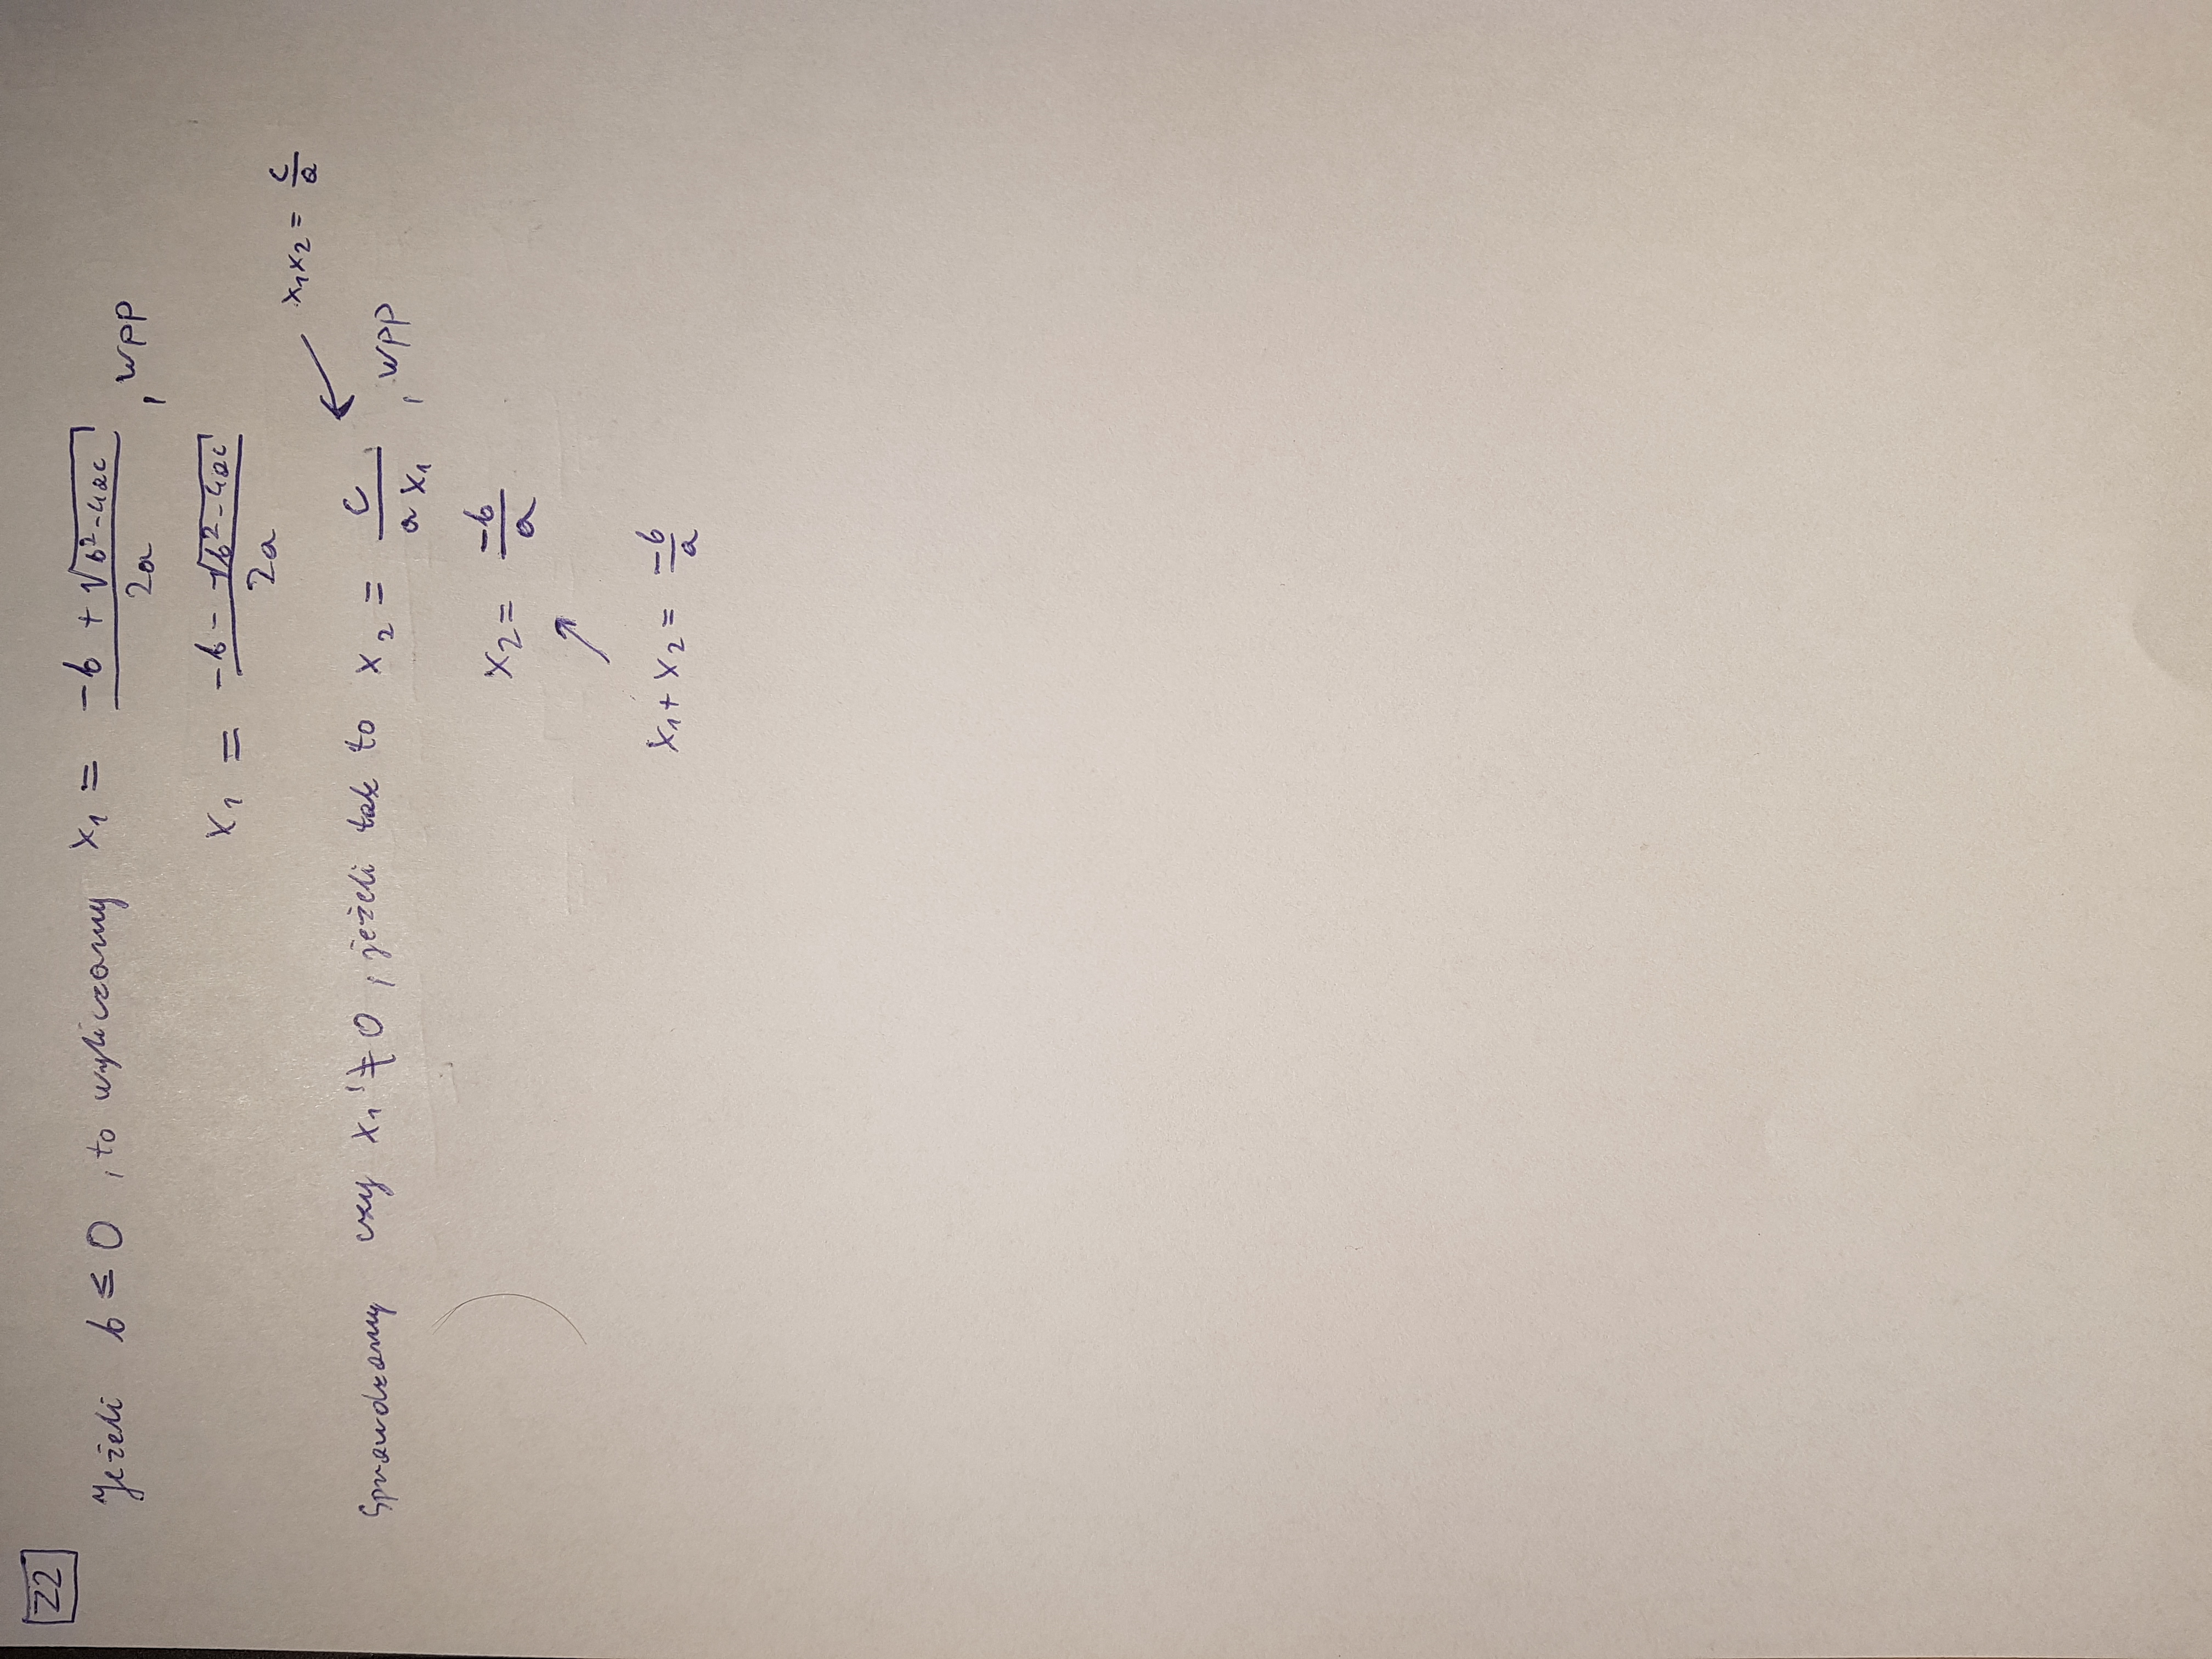 Z2
Jeżeli b ≤ 0, to wyliczamy x₁ = (-b + √(b²-4ac)) / 2a, wpp
x₁ = (-b - √(b²-4ac)) / 2a
x₁x₂ = c/a
Sprawdzamy czy x₁ ≠ 0, jeżeli tak to x₂ = c / (a x₁), wpp
x₂ = -b/a
x₁ + x₂ = -b/a